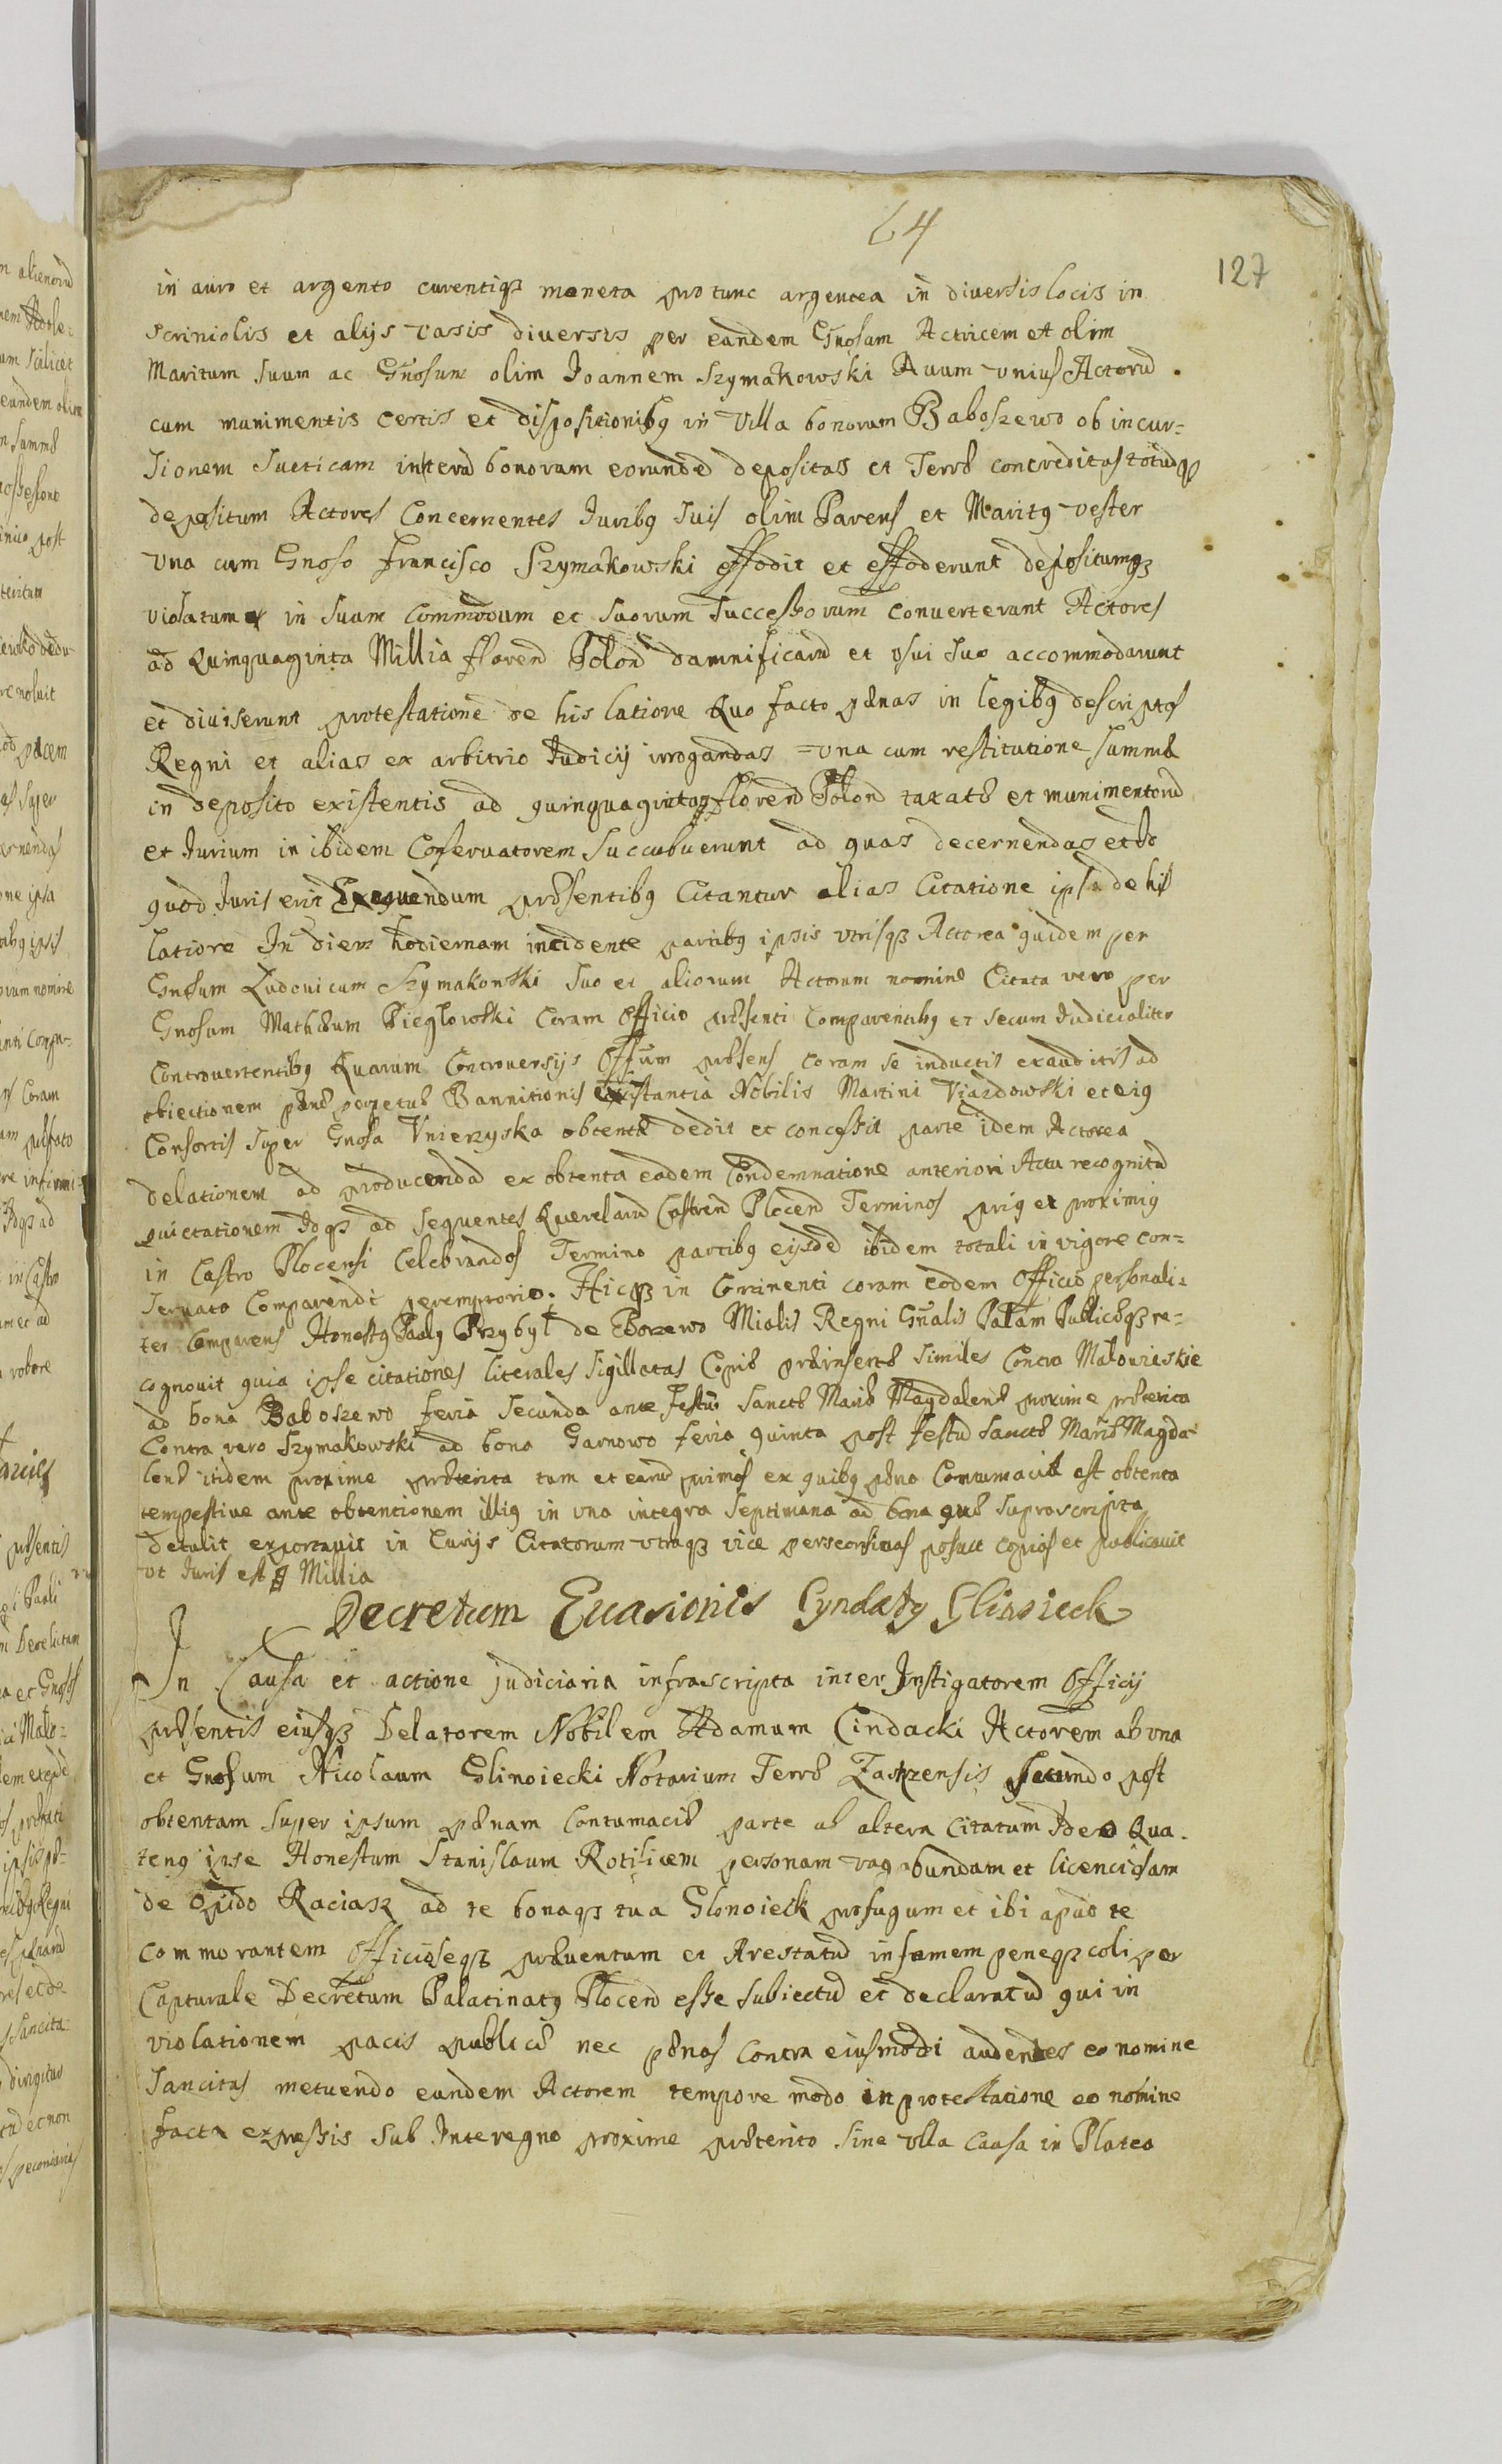 64
127
in auro et argento curentiqȝ moneta pro tunc argentea in diuersis locis in
scriniolis et alijs vasis diuersis per eandem Gnosam Actricem et olim
Maritum suum ac Gnosum olim Joannem Szymakowski Auum vnius Actorū
cum munimentis certis et dispositionibꝰ in Villa bonorum Baboszewo ob incur=
sionem Sueticam interū bonorum eorundē depositas et Terræ concreditas totūdqȝ
depositum Actores Concernentes Juribꝰ suis olim Parens et Maritꝰ vester
vna cum Gnoso Francisco Szymakowski effodit et effoderunt depositumqȝ
violatum in suum commodum et suorum successorum conuerterunt Actores
ad Quinquaginta Millia floren Polon damnificarū et vsui suo accommodarunt
et diuiserunt protestatione de his latiore Quo facto pænas in legibꝰ descriptas
Regni et alias ex arbitrio Judicij irrogandas =vna cum restitutione summæ
in deposito existentis ad quinquaginta floren Polon taxatæ et munimentorū
et Jurium in ibidem Conseruatorem succubuerunt ad quas decernendas et
quod Juris erit Exequendum præsentibꝰ Citantur alias Citatione ipsa de his
latiore In diem hodiernam incidente partibꝰ ipsis vtrisqȝ Actorea quidem per
Gnosum Ludouicum Szymakowski suo et aliorum Actorum nomine Citata vero per
Gnosum Mathæum Pieglowski Coram Officio præsenti Comparentibꝰ et secum Judicialiter
Controuertentibꝰ Quarum Controuersijs Offium præsens coram se inductis exauditis ad
obiectionem pænæ perpetuæ Bannitionis Exinstantia Nobilis Martini Viazdowski et eiꝰ
Consortis super Gnosa Vnierzyska obtentæ dedit et concessit parte idem Actorea
delationem ad producendā ex obtenta eadem Condemnatione anteriori Actu recognitā
quietationem Idqȝ ad sequentes Querelarū Castren Plocen Terminos priꝰ et proximiꝰ
in Castro Plocensi Celebrandos Termino partibꝰ eisdē ibidem totali in vigore con=
seruato Comparendi peremptorie. Hicqȝ in continenti coram eodem Officio personali=
ter Comparens Honestꝰ Paulꝰ Przybył de Bozewo Mialis Regni Gnalis Palam Publiceqȝ re=
cognouit quia ipse citationes literales sigillatas Copiæ præinsertæ similes Contra Malowieskie
ad bona Baboszewo feria secunda ante Festū Sanctæ Mariæ Magdalenæ proxime præterita
Contra vero Szymakowski ad bona Garnowo feria quinta post festū Sanctæ Mariæ Magda=
lenæ itidem proxime præterita tum et earū primas ex quibꝰ pæna Contumaciæ est obtenta
tempestiue ante obtentionem illiꝰ in vna integra septimana ad bona quæ supra scripta
detulit exportauit in Curijs Citatorum vtraqȝ vice posuit copias et publicauit
vt Juris est Millia
Decretum Euasionis Cyndaty Glinieck
In Causa et actione judiciaria infrascripta inter Instigatorem Officij
præsentis eiusqȝ Delatorem Nobilem Adamum Cindacki Actorem ab vna
et Gnosum Nicolaum Glinoiecki Notarium Terræ Zakrzensis secundo post
obtentam super ipsum pænam contumaciæ parte ab altera Citatum Ideo Qua=
tenꝰ ipse Honestum Stanislaum Rotificem personam vagabundam et licenciosam
de Opido Raciasz ad te bonaqȝ tua Glonoieck profugum et ibi apud te
commorantem Officioseqȝ præuentum et Arestatū infamem peneqȝ coli per
Capturale Decretum Palatinatꝰ Plocen esse subiectū et declaratū qui in
violationem pacis publicæ nec pænas contra eiusmodi audentes eo nomine
sancitas metuendo eundem Actorem tempore modo in protestatione eo nomine
facta expressis sub Interegno proxime præterito sine vlla causa in Platea